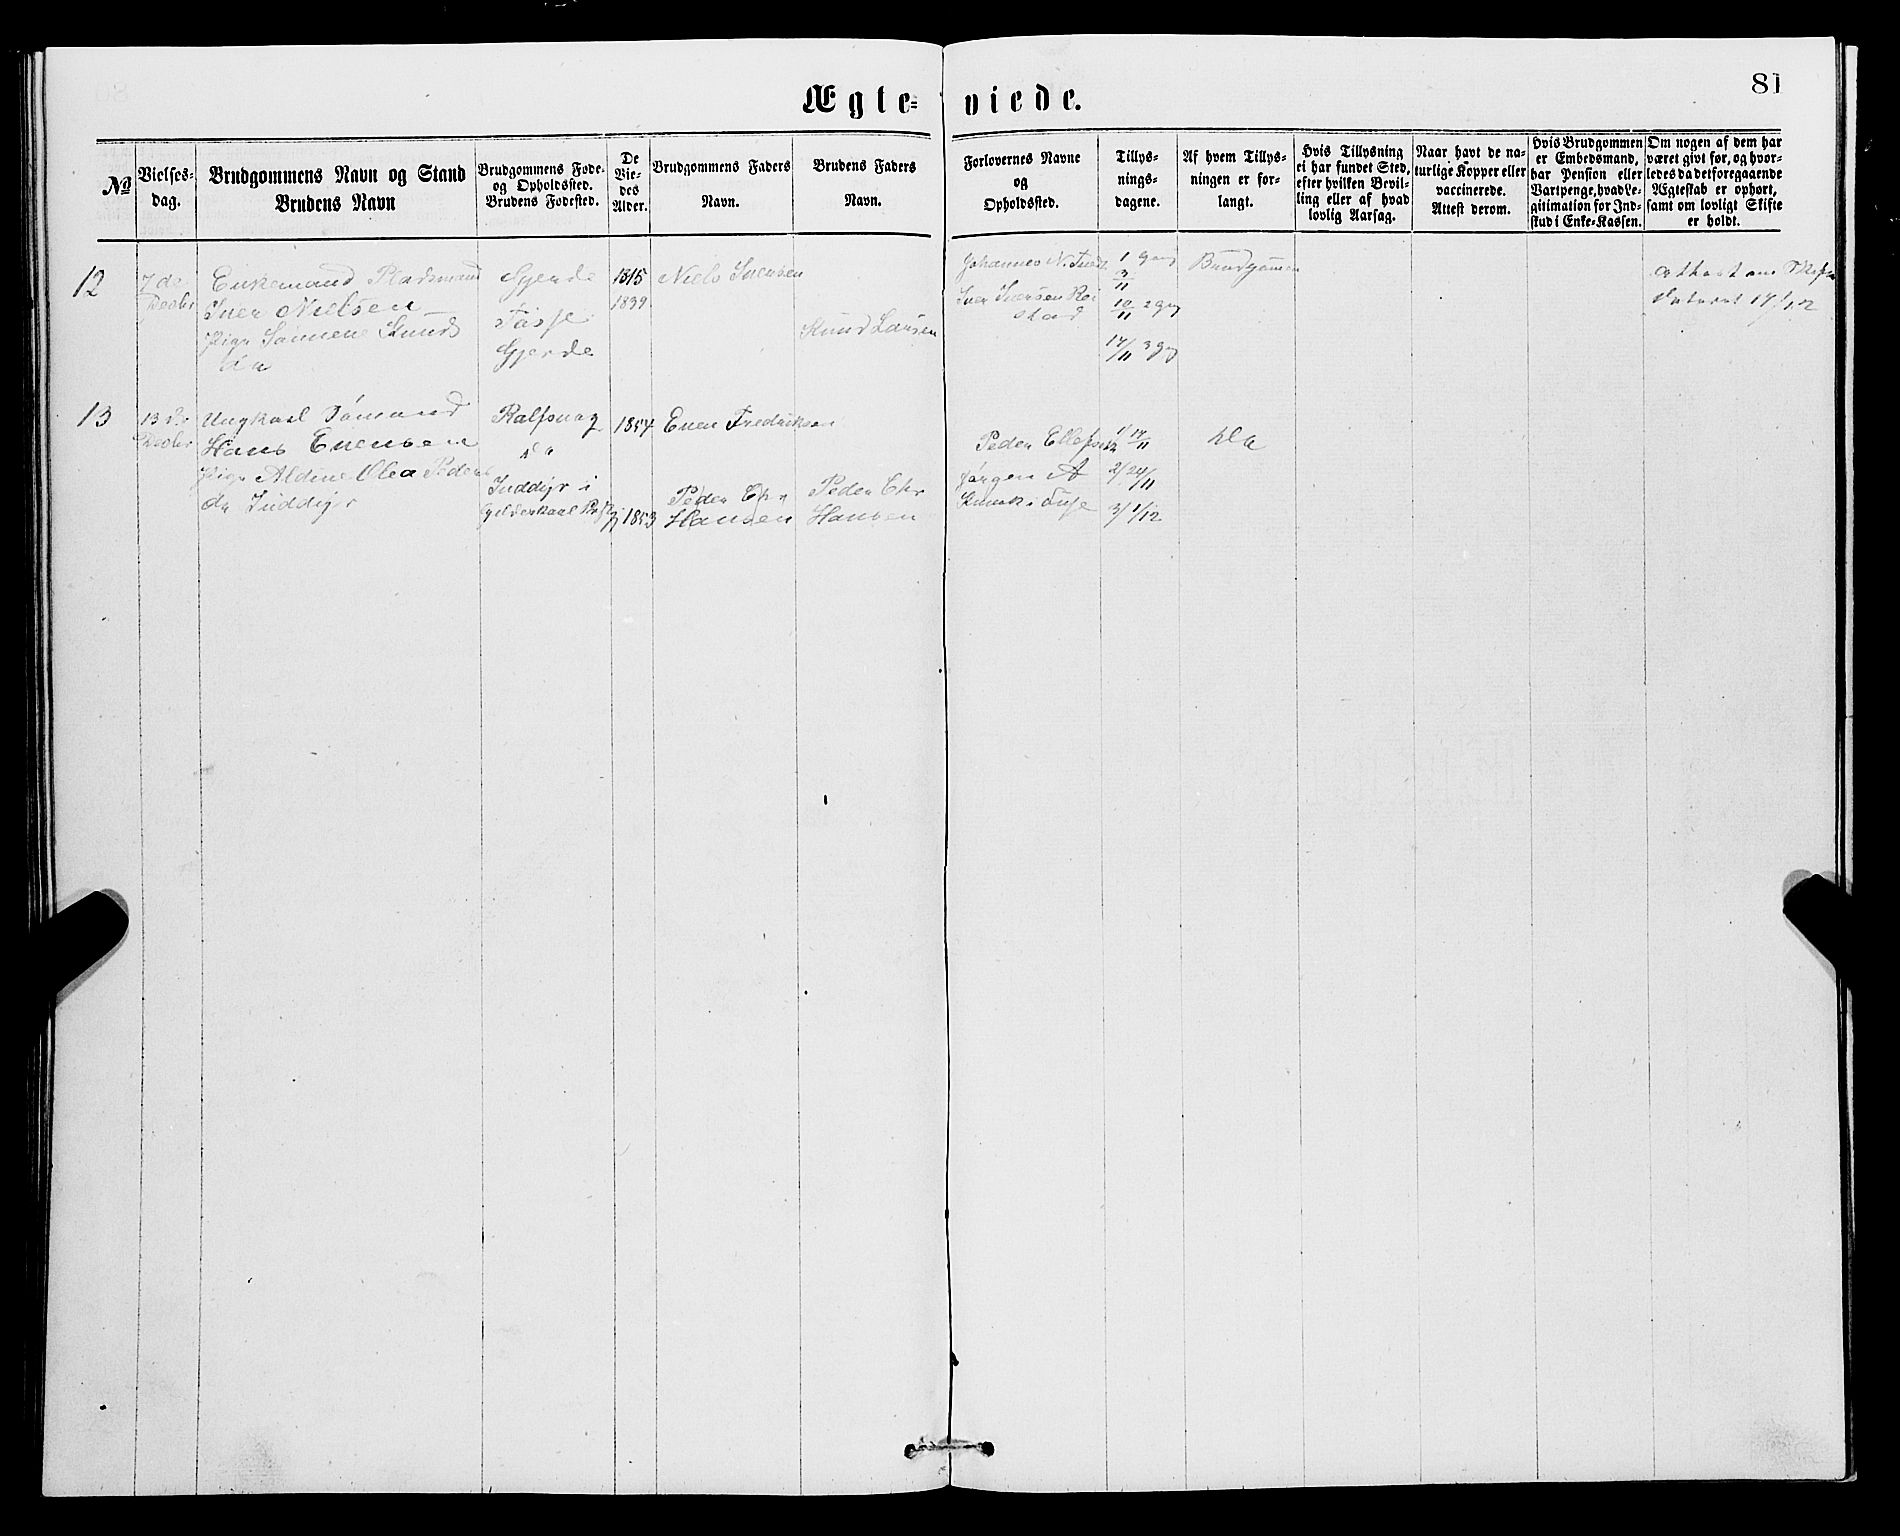 Ægte- viede.
81
No
Vielses-
dag.
Brudgommens Navn og Stand
Brudens Navn
Brudgommens Føde-
og Opholdssted.
Brudens Fødested.
De
Vie-
des
Alder.
Brudgommens Faders
Navn.
Brudens Faders
Navn.
Forlovernes Navne
og
Opholdssted.
Tillys-
nings-
dagene.
Af hvem Tillys-
ningen er for-
langt.
Hvis Tillysning
ei har fundet Sted,
efter hvilken Bevil-
ling eller af hvad
lovlig Aarsag.
Naar havt de na-
turlige Kopper eller
vaccinerede.
Attest derom.
Hvis Brudgommen
er Embedsmand,
har Pension eller
Vartpenge, hvad Le-
gitimation for Ind-
skud i Enke-Kassen.
Om nogen af dem har
været givt før, og hvor-
ledes da det foregaaende
Ægteskab er ophørt,
samt om lovligt Skifte
er holdt.
12
7de
Decbr
Enkemand Pladsmand
Iver Nielsen
Pige Knuds
da
Gjerde
Gjerde
1815
1839
Niels Iversen
Knud Larsen
Johannes N.
Iver Iversen Rei
stad
1 Gang
3/11
10/11 2 Gng
17/11 3 Gng
Brudgommen
Attest om Skifte
dateret
13
13de
Decbr
Ungkarl
Hans Evensen
Pige Aldine Olea Peders
da Inddyr
"
Inddyr i
1854
1853
Even Fredriksen
Peder Chr
Hansen
Peder Chr
Hansen
Peder Ellefsen
Jørgen A
1/ 17/11
2/ 24/11
3/ 1/12